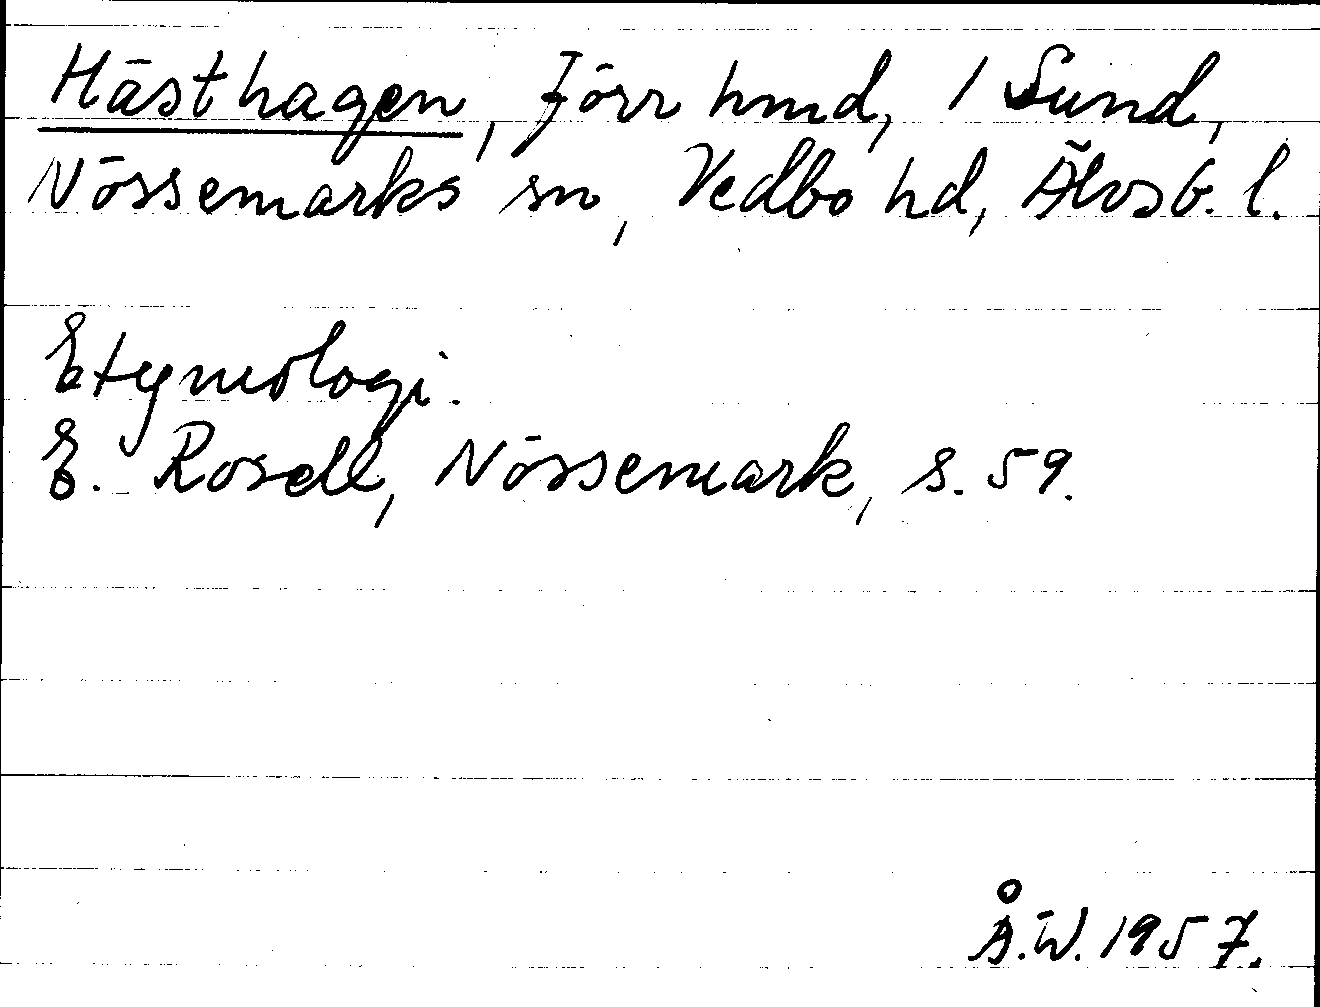 Hästhagen, förr hmd, 1 Sund,
Nössemarks sn, Vedbo hd, Älvsb. l.
Etymologi.
E. Rosell, Nössemark, s. 59.
Å.W. 1957.